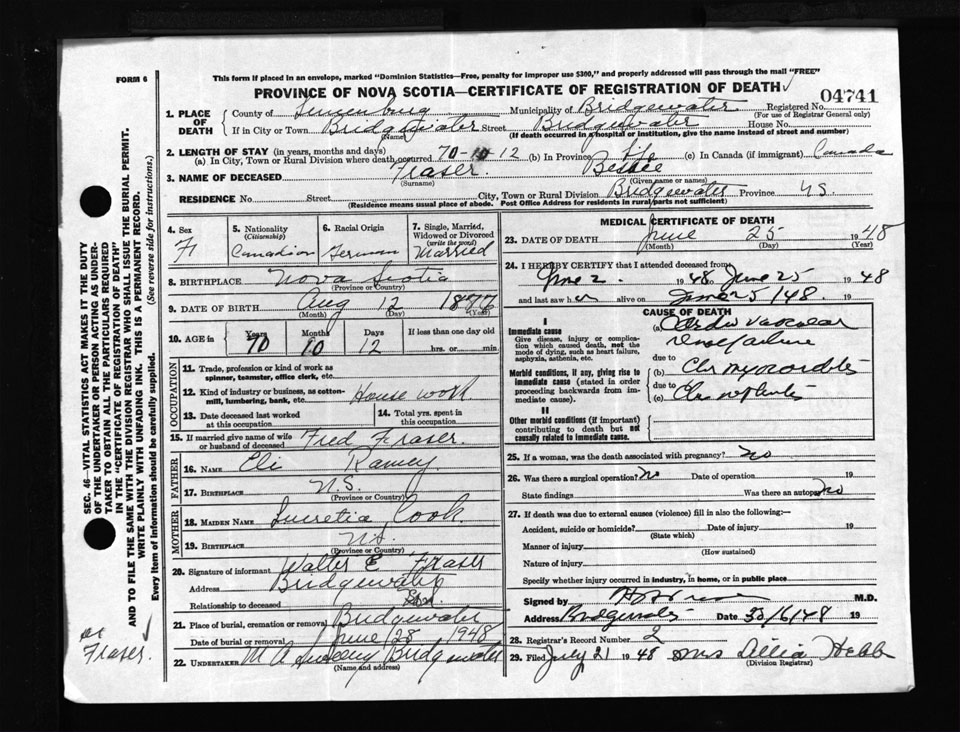 FORM 6
This form if placed in an envelope, marked "Dominion Statistics—Free, penalty for improper use $300," and properly addressed will pass through the mail "FREE"
PROVINCE OF NOVA SCOTIA—CERTIFICATE OF REGISTRATION OF DEATH
04741
1. PLACE OF DEATH
County of Lunenburg Municipality of Bridgewater Registered No.
(For use of Registrar General only)
If in City or Town Bridgewater Street Bridgewater House No.
(Name) (If death occurred in a hospital or institution, give the name instead of street and number)
2. LENGTH OF STAY (in years, months and days)
(a) In City, Town or Rural Division where death occurred 70-10-12 (b) In Province life (c) In Canada (if immigrant) Canada
3. NAME OF DECEASED Fraser. Bessie
(Surname) (Given name or names)
RESIDENCE No. Street City, Town or Rural Division Bridgewater Province NS.
(Residence means usual place of abode. Post Office Address for residents in rural parts not sufficient)
4. Sex
F
5. Nationality
(Citizenship)
Canadian
6. Racial Origin
German
7. Single, Married, Widowed or Divorced
(write the word)
Married
8. BIRTHPLACE Nova Scotia
(Province or Country)
9. DATE OF BIRTH Aug 12 1877
(Month) (Day) (Year)
10. AGE in
Years Months Days If less than one day old
70 10 12 hrs. or min.
OCCUPATION
11. Trade, profession or kind of work as spinner, teamster, office clerk, etc.
12. Kind of industry or business, as cotton-mill, lumbering, bank, etc. House work
13. Date deceased last worked at this occupation
14. Total yrs. spent in this occupation
15. If married give name of wife or husband of deceased Fred Fraser.
FATHER
16. NAME Eli Ramey.
17. BIRTHPLACE N.S.
(Province or Country)
MOTHER
18. MAIDEN NAME Lucretia Cook.
19. BIRTHPLACE N.S.
(Province or Country)
20. Signature of informant Walter E Fraser
Address Bridgewater
Relationship to deceased Son.
21. Place of burial, cremation or removal Bridgewater
Date of burial or removal June 28 1948
22. UNDERTAKER M A Sweeny Bridgewater
(Name and address)
MEDICAL CERTIFICATE OF DEATH
23. DATE OF DEATH June 25 1948
(Month) (Day) (Year)
24. I HEREBY CERTIFY that I attended deceased from
June 2. 1948 June 25 1948
and last saw her alive on June 25/48. 19
CAUSE OF DEATH
I
Immediate cause
Give disease, injury or complication which caused death, not the mode of dying, such as heart failure, asphyxia, asthenia, etc.
(a) Cardio vascular
renal failure
due to
Morbid conditions, if any, giving rise to immediate cause (stated in order proceeding backwards from immediate cause).
(b) Chr myocarditis
due to
(c) Chr nephritis
II
Other morbid conditions (if important) contributing to death but not causally related to immediate cause.
25. If a woman, was the death associated with pregnancy? no
26. Was there a surgical operation? no Date of operation 19
State findings Was there an autopsy no
27. If death was due to external causes (violence) fill in also the following:—
Accident, suicide or homicide? Date of injury 19
(State which)
Manner of injury
(How sustained)
Nature of injury
Specify whether injury occurred in industry, in home, or in public place
Signed by M.D.
Address Bridgewater Date 30/6/48 19
28. Registrar's Record Number 2
29. Filed July 21 1948 Mrs Hebb
(Division Registrar)
SEC. 46—VITAL STATISTICS ACT MAKES IT THE DUTY
OF THE UNDERTAKER OR PERSON ACTING AS UNDERTAKER TO OBTAIN ALL THE PARTICULARS REQUIRED
IN THE "CERTIFICATE OF REGISTRATION OF DEATH"
AND TO FILE THE SAME WITH THE DIVISION REGISTRAR WHO SHALL ISSUE THE BURIAL PERMIT.
WRITE PLAINLY WITH UNFADING INK. THIS IS A PERMANENT RECORD.
Every item of information should be carefully supplied.
(See reverse side for instructions.)
Fraser.